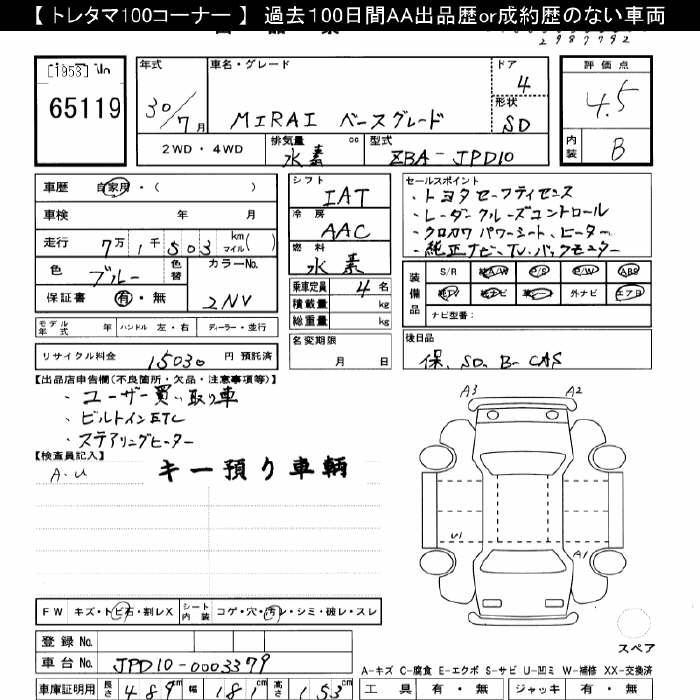 【 トレタマ100コーナー 】 過去100日間AA出品歴or成約歴のない車両
2987792
[1953]
65119
年式 車名・グレード ドア 評価点
30/7月 MIRAI ベースグレード 4 4.5
形状 SD
2WD・4WD 排気量 cc 水素 型式 ZBA-JPD10 内装 B
車歴 自家用・( )
車検 年 月
走行 7万1千503 km マイル( )
色 ブルー 色替 カラーNo. 2NV
保証書 有・無
モデル年式 年 ハンドル 左・右 ディーラー・並行
リサイクル料金 15030 円 預託済
シフト IAT
冷房 AAC
燃料 水素
乗車定員 4名
積載量 kg
総重量 kg
名変期限 月 日
セールスポイント
・トヨタセーフティセンス
・レーダークルーズコントロール
・クロカワ パワーシート、ヒーター
・純正ナビ、TV、バックモニター
装備品 S/R 純A/W P/S P/W ABS
純TV 純ナビ 革シート 外ナビ エアB
ナビ型番:
後日品
保、SD、B-CAS
【出品店申告欄(不良箇所・欠品・注意事項等)】
・ユーザー買い取り車
・ビルトインETC
・ステアリングヒーター
【検査員記入】
A・U
キー預り車輌
A3 A2
U1 A1
FW キズ・トビ石・割レX シート内装 コゲ・穴・汚レ・シミ・破レ・スレ
スペア
登録 No.
車台 No. JPD10-0003379
A-キズ C-腐食 E-エクボ S-サビ U-凹ミ W-補修 XX-交換済
車庫証明用 長さ 489cm 幅 181cm 高さ 153cm 工具 有・無 ジャッキ 有・無